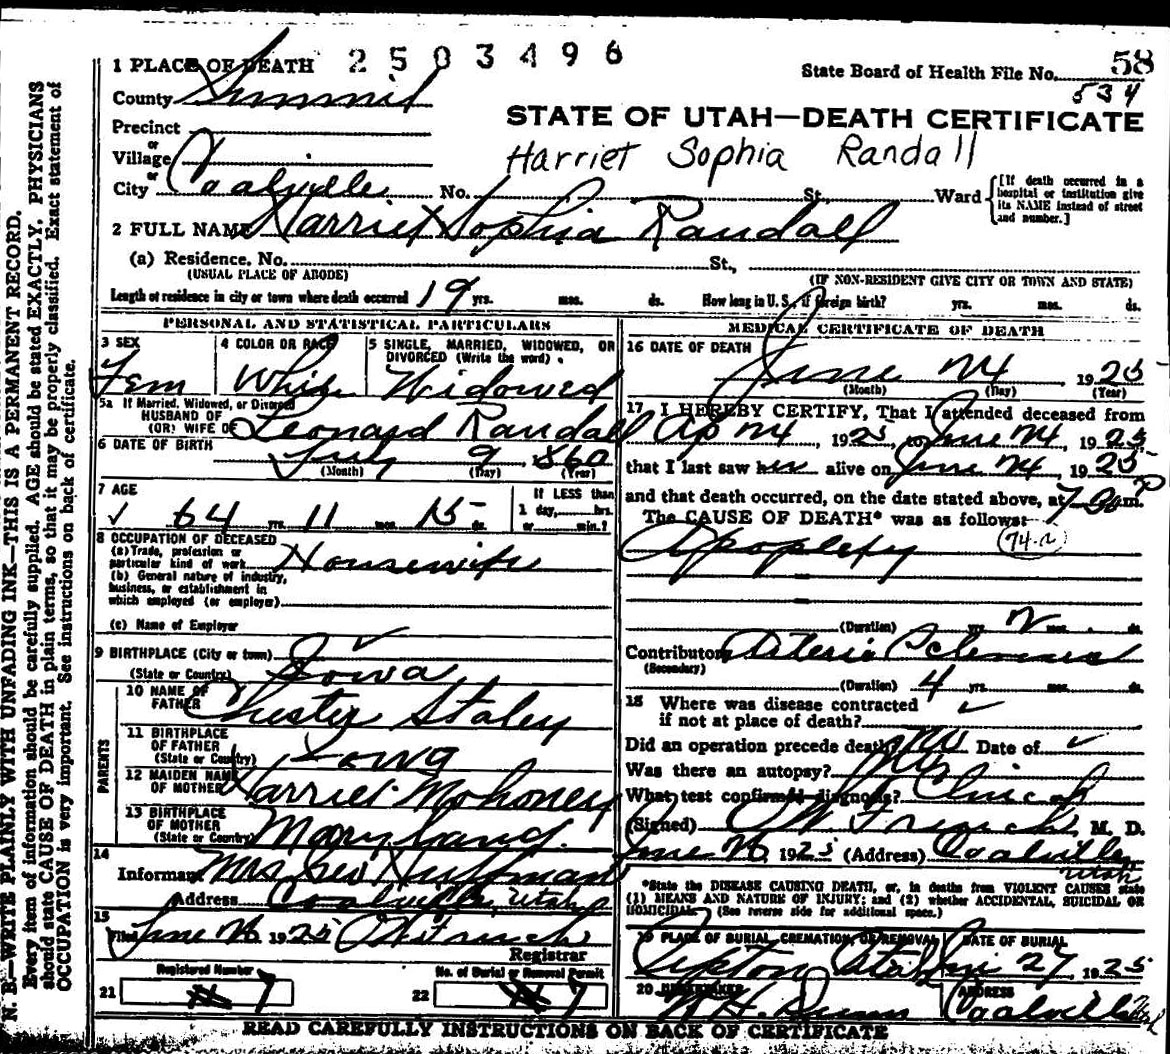 2503496
58
1 PLACE OF DEATH
State Board of Health File No. 534
County Summit
STATE OF UTAH—DEATH CERTIFICATE
Precinct
or
Village
Harriet Sophia Randall
or
City Coalville No. St. Ward
[If death occurred in a hospital or institution give its NAME instead of street and number.]
2 FULL NAME Harriet Sophia Randall
(a) Residence. No. St.,
(USUAL PLACE OF ABODE) (IF NON-RESIDENT GIVE CITY OR TOWN AND STATE)
Length of residence in city or town where death occurred 19 yrs. mos. ds. How long in U. S., if foreign birth? yrs. mos. ds.
PERSONAL AND STATISTICAL PARTICULARS
3 SEX
Fem
4 COLOR OR RACE
White
5 SINGLE, MARRIED, WIDOWED, OR DIVORCED (Write the word)
Widowed
5a If Married, Widowed, or Divorced
HUSBAND OF
(OR) WIFE OF Leonard Randall
6 DATE OF BIRTH July 9, 1860
(Month) (Day) (Year)
7 AGE
64 yrs. 11 mos. 15 ds.
If LESS than
1 day, hrs.
or min.?
8 OCCUPATION OF DECEASED
(a) Trade, profession or
particular kind of work Housewife
(b) General nature of industry,
business, or establishment in
which employed (or employer)
(c) Name of Employer
9 BIRTHPLACE (City or town)
(State or Country) Iowa
PARENTS
10 NAME OF
FATHER Chester Staley
11 BIRTHPLACE
OF FATHER
(State or Country) Iowa
12 MAIDEN NAME
OF MOTHER Harriet Mohoney
13 BIRTHPLACE
OF MOTHER
(State or Country) Maryland.
14
Informant Mrs Geo Huffman
Address Coalville, Utah
15
Filed June 26 1925
Registrar
Registered Number
21 7
No. of Burial or Removal Permit
22 7
MEDICAL CERTIFICATE OF DEATH
16 DATE OF DEATH
June 24 1925
(Month) (Day) (Year)
17 I HEREBY CERTIFY, That I attended deceased from
Ap 24, 1925, to June 24, 1925
that I last saw her alive on June 24, 1925
and that death occurred, on the date stated above, at 7 30 P m.
The CAUSE OF DEATH* was as follows:
Apoplexy
(Duration) yrs. 2 mos. ds.
Contributory
(Secondary)
(Duration) 4 yrs. mos. ds.
18 Where was disease contracted
if not at place of death?
Did an operation precede death? No Date of
Was there an autopsy? No
What test confirmed diagnosis? Clinical
(Signed) French, M. D.
June 26, 1925 (Address) Coalville
Utah
*State the DISEASE CAUSING DEATH, or, in deaths from VIOLENT CAUSES state
(1) MEANS AND NATURE OF INJURY; and (2) whether ACCIDENTAL, SUICIDAL OR
HOMICIDAL. (See reverse side for additional space.)
19 PLACE OF BURIAL, CREMATION, OR REMOVAL
Upton Utah
DATE OF BURIAL
27, 1925
20 UNDERTAKER
ADDRESS
Coalville
READ CAREFULLY INSTRUCTIONS ON BACK OF CERTIFICATE
N. B.—WRITE PLAINLY WITH UNFADING INK—THIS IS A PERMANENT RECORD.
Every item of information should be carefully supplied. AGE should be stated EXACTLY. PHYSICIANS
should state CAUSE OF DEATH in plain terms, so that it may be properly classified. Exact statement of
OCCUPATION is very important. See instructions on back of certificate.